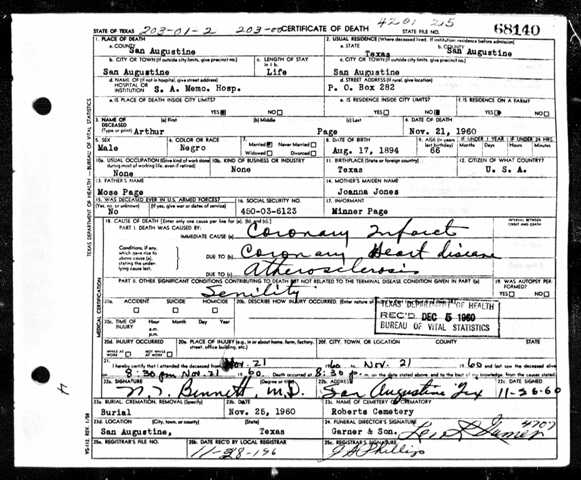 4201 215
STATE OF TEXAS 203-01-2 203-00 CERTIFICATE OF DEATH STATE FILE NO. 68140
1. PLACE OF DEATH 2. USUAL RESIDENCE (Where deceased lived. If institution: residence before admission)
a. COUNTY San Augustine a. STATE Texas b. COUNTY San Augustine
b. CITY OR TOWN (If outside city limits, give precinct no.) c. LENGTH OF STAY c. CITY OR TOWN (If outside city limits, give precinct no.)
San Augustine Life San Augustine
d. NAME OF (If not in hospital, give street address) d. STREET ADDRESS (If rural, give location)
HOSPITAL OR INSTITUTION S. A. Memo. Hosp. P. O. Box 282
e. IS PLACE OF DEATH INSIDE CITY LIMITS? e. IS RESIDENCE INSIDE CITY LIMITS? f. IS RESIDENCE ON A FARM?
YES NO YES NO YES NO
3. NAME OF DECEASED (a) First (b) Middle (c) Last 4. DATE OF DEATH
(Type or print) Arthur Page Nov. 21, 1960
5. SEX 6. COLOR OR RACE 7. Married Never Married Widowed Divorced 8. DATE OF BIRTH 9. AGE (In years last birthday) IF UNDER 1 YEAR IF UNDER 24 HRS.
Male Negro Aug. 17, 1894 66 Months Days Hours Min.
10a. USUAL OCCUPATION (Give kind of work done during most of working life, even if retired) 10b. KIND OF BUSINESS OR INDUSTRY 11. BIRTHPLACE (State or foreign country) 12. CITIZEN OF WHAT COUNTRY?
None None Texas U. S. A.
13. FATHER'S NAME 14. MOTHER'S MAIDEN NAME
Mose Page Joanna Jones
15. WAS DECEASED EVER IN U.S. ARMED FORCES? 16. SOCIAL SECURITY NO. 17. INFORMANT
(Yes, no, or unknown) (If yes, give war or dates of service)
No 460-03-6123 Minner Page
18. CAUSE OF DEATH (Enter only one cause per line for (a), (b), and (c).) INTERVAL BETWEEN ONSET AND DEATH
PART I. DEATH WAS CAUSED BY:
IMMEDIATE CAUSE (a) Coronary Infarct
Conditions, if any, which gave rise to above cause (a), stating the underlying cause last.
DUE TO (b) Coronary Heart disease
DUE TO (c) Atherosclerosis
PART II. OTHER SIGNIFICANT CONDITIONS CONTRIBUTING TO DEATH BUT NOT RELATED TO THE TERMINAL DISEASE CONDITION GIVEN IN PART I(a) 19. WAS AUTOPSY PERFORMED?
Senility YES NO
20a. ACCIDENT SUICIDE HOMICIDE 20b. DESCRIBE HOW INJURY OCCURRED.
TEXAS DEPARTMENT OF HEALTH
REC'D DEC 5 1960
BUREAU OF VITAL STATISTICS
20c. TIME OF INJURY Hour Month Day Year
a.m.
p.m.
20d. INJURY OCCURRED 20e. PLACE OF INJURY (e.g., in or about home, farm, factory, street, office building, etc.) 20f. CITY, TOWN, OR LOCATION COUNTY STATE
WHILE AT WORK NOT WHILE AT WORK
21. I hereby certify that I attended the deceased from Nov. 21 60 to Nov. 21 60 and last saw the deceased alive
on 8:30 pm Nov. 21 60. Death occurred at 8:30 p. m. on the date stated above, and to the best of my knowledge, from the causes stated.
22a. SIGNATURE (Degree or title) 22b. ADDRESS 22c. DATE SIGNED
Bennett, M.D. San Augustine Tex 11-26-60
23a. BURIAL, CREMATION, REMOVAL (Specify) 23b. DATE 23c. NAME OF CEMETERY OR CREMATORY
Burial Nov. 25, 1960 Roberts Cemetery
23d. LOCATION (City, town, or county) (State) 24. FUNERAL DIRECTOR'S SIGNATURE
San Augustine, Texas Garner & Son. 4707
25a. REGISTRAR'S FILE NO. 25b. DATE REC'D BY LOCAL REGISTRAR 25c. REGISTRAR'S SIGNATURE
11-28-196 Phillips
TEXAS DEPARTMENT OF HEALTH — BUREAU OF VITAL STATISTICS
MEDICAL CERTIFICATION